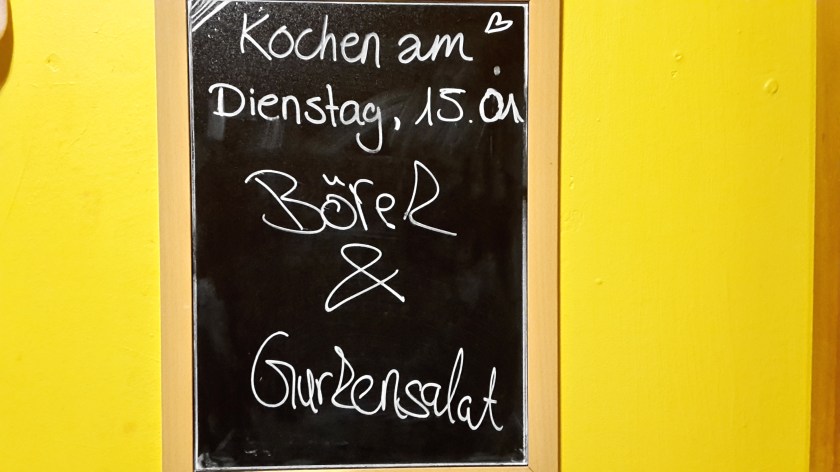 Kochen am
Dienstag, 15.01
Börek
&
Gurkensalat